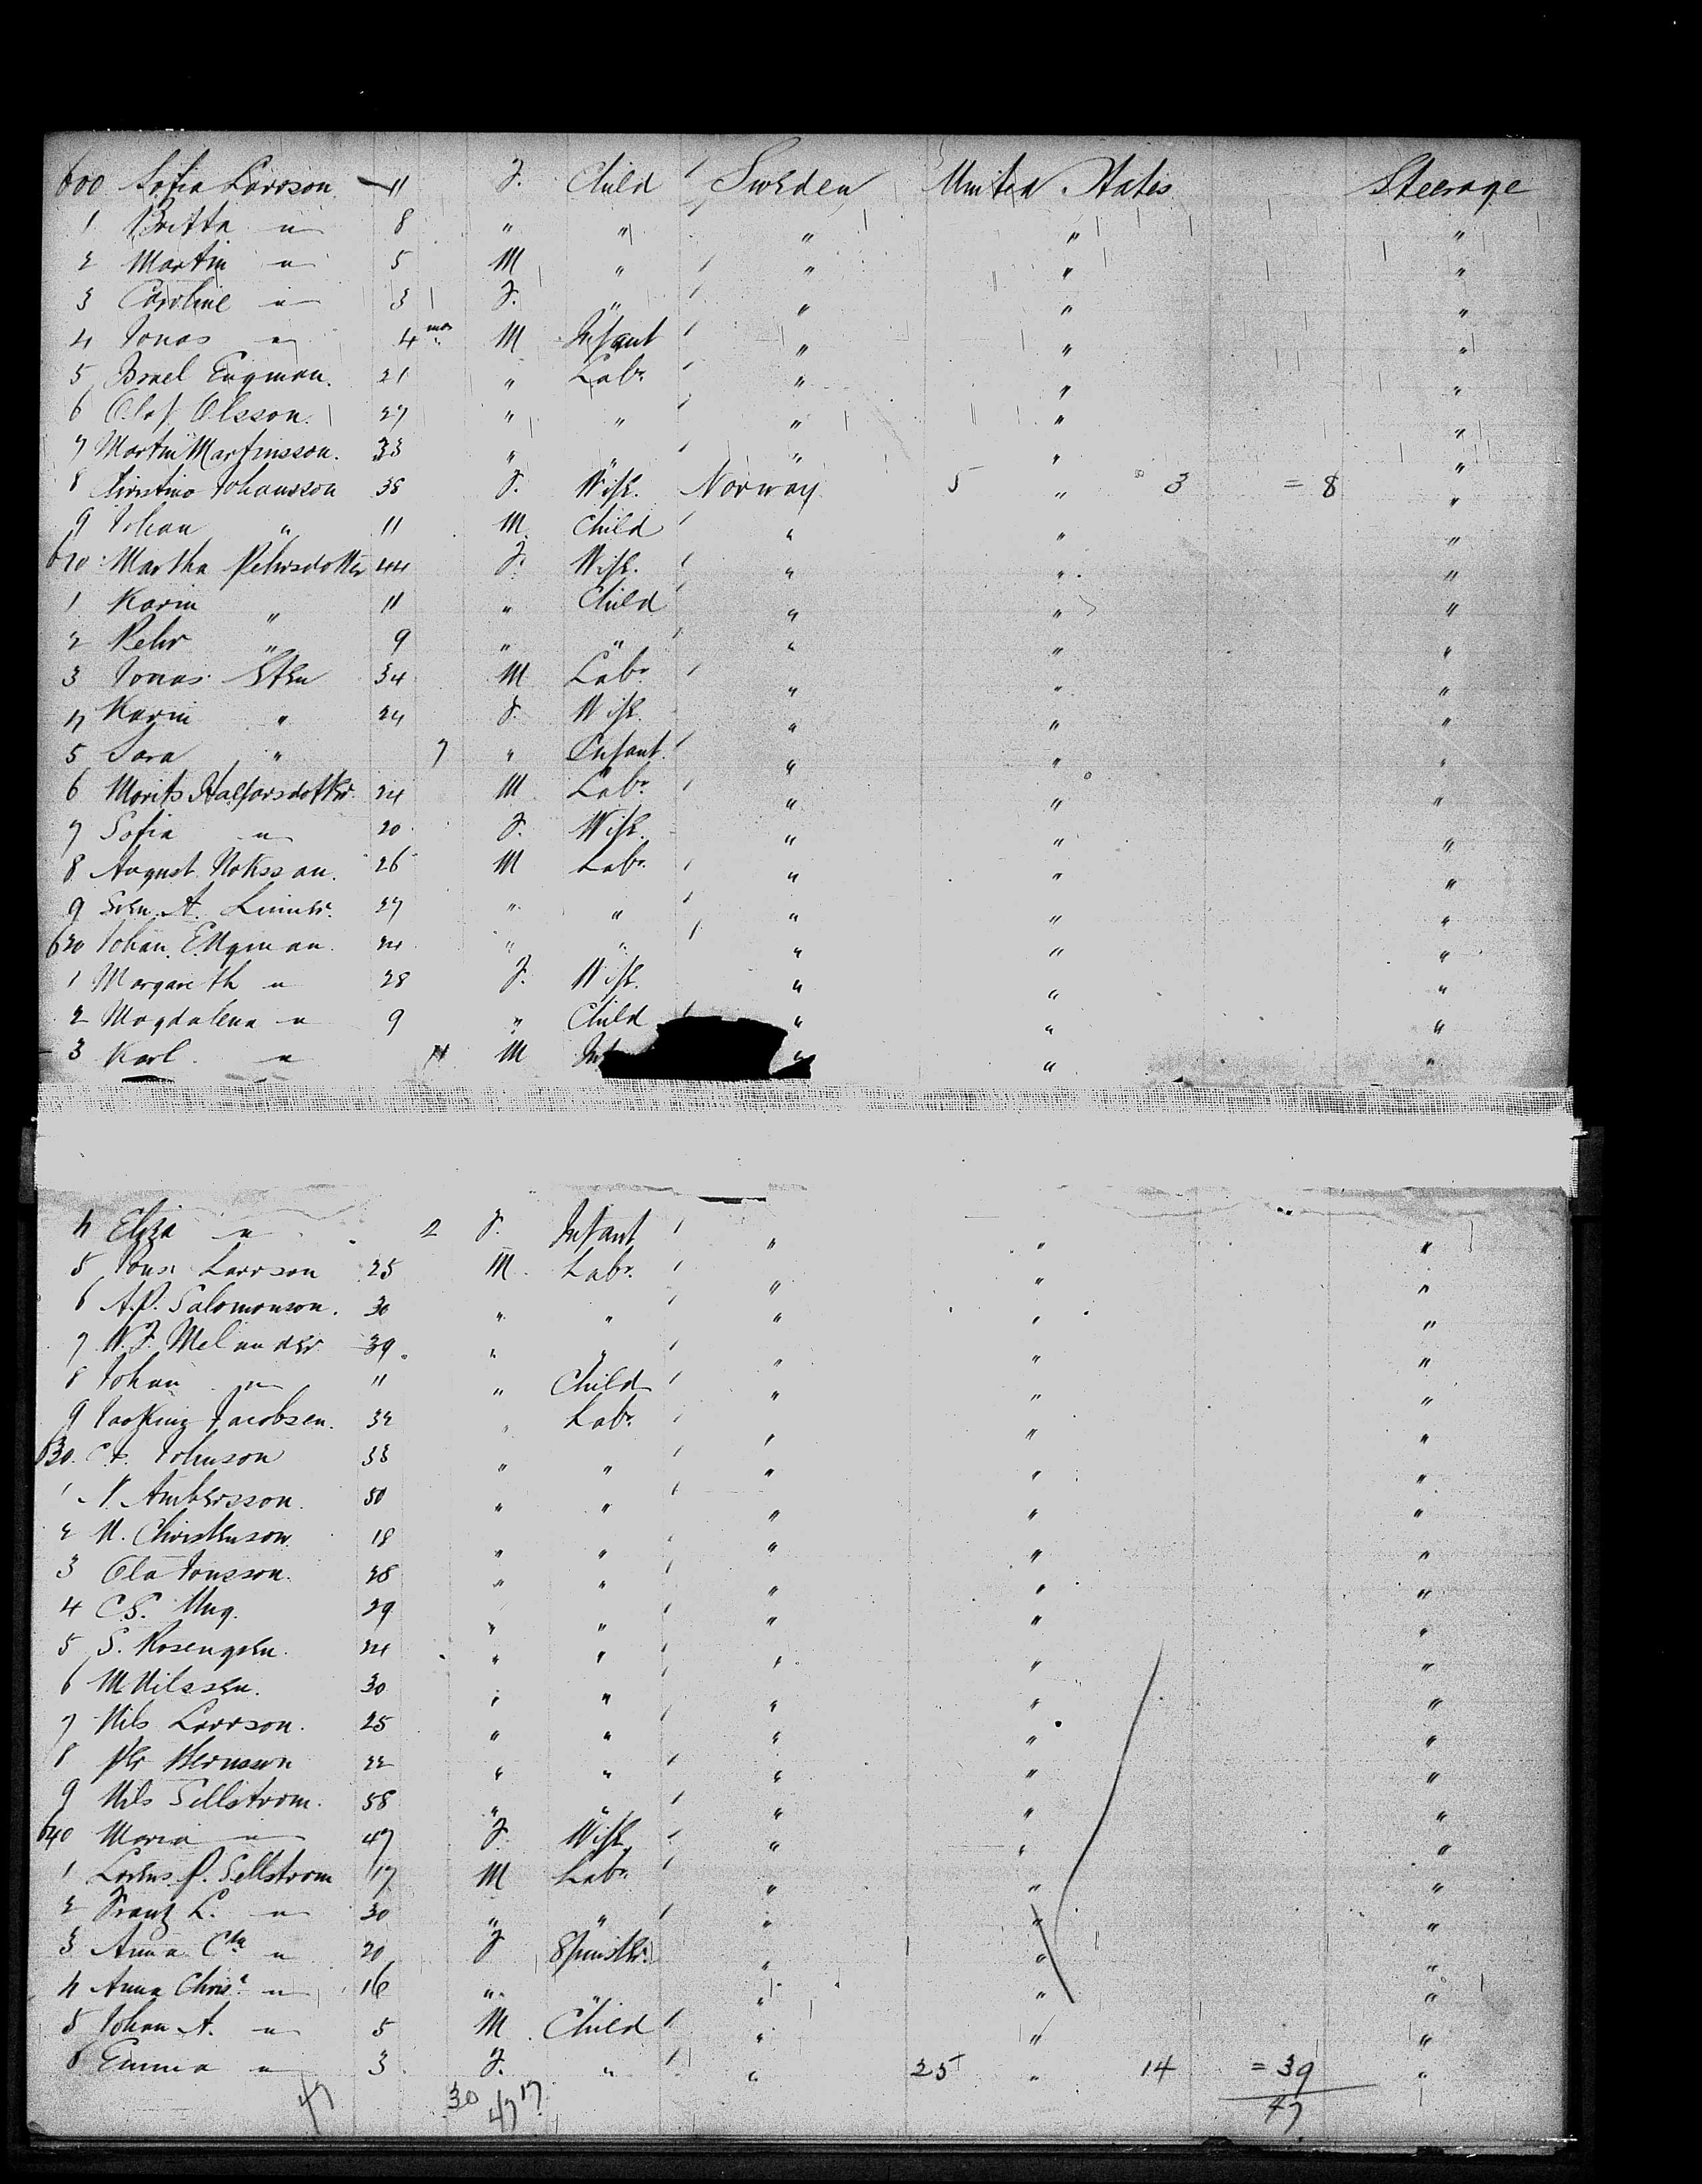 600 Sofia Larsson 11 F. Child Sweden United States Steerage
1 Britta " 8 " " " " "
2 Martin " 5 M " " " "
3 Caroline " 3 F. " " " "
4 Jonas " 4 mos M Infant " " "
5 Israel Engman. 21 " Labr. " " "
6 Olof Olsson. 27 " " " " "
7 Martin Martinsson. 33 " " " " "
8 Christina Johansson 38 F. Wife. Norway 5 " 3 = 8 "
9 Johan " 11 M. Child " " "
610 Martha Pehrsdotter 44 F. Wife. " " "
1 Karin " 11 " Child " " "
2 Pehr " 9 " " " " "
3 Jonas Sten 34 M Labr. " " "
4 Karin " 24 F. Wife. " " "
5 Sara " 7 " Infant. " " "
6 Morits Halfarsdotter. 24 M Labr. " " "
7 Sofia " 20 F. Wife. " " "
8 August 26 M Labr. " " "
9 Sven A. 27 " " " " "
620 Johan 24 " " " " "
1 Margareth " 28 F. Wife. " " "
2 Magdalena " 9 " Child " " "
3 Karl " 11 M " " "
4 Eliza " 2 F. Infant " " "
5 Larsson 25 M. Labr. " " "
6 A.P. Salomonson. 30 " " " " "
7 Melander 39. " " " " "
8 Johan " 11 " Child " " "
9 Jacobsen. 32 " Labr. " " "
630. Johnson 33 " " " " "
1 N. Ambersson. 50 " " " " "
2 N. Christenson 18 " " " " "
3 Ola Jonsson. 28 " " " " "
4 C.S. Ung. 29 " " " " "
5 S. Rosengren. 24 " " " " "
6 M Nilssen. 30 " " " " "
7 Nils Larsson. 25 " " " " "
8 Per 22 " " " " "
9 Nils Sellstrom. 58 " " " " "
640 Maria " 47 F. Wife " " "
1 P. Sellstrom 17 M Labr. " " "
2 Frantz L. " 30 " " " " "
3 Anna " 20 F Spinstr. " " "
4 Anna Chris. " 16 " " " " "
5 Johan A. " 5 M. Child " " "
6 Emma " 3 F. " " 25 " 14 = 39 "
47 30 17 47 47